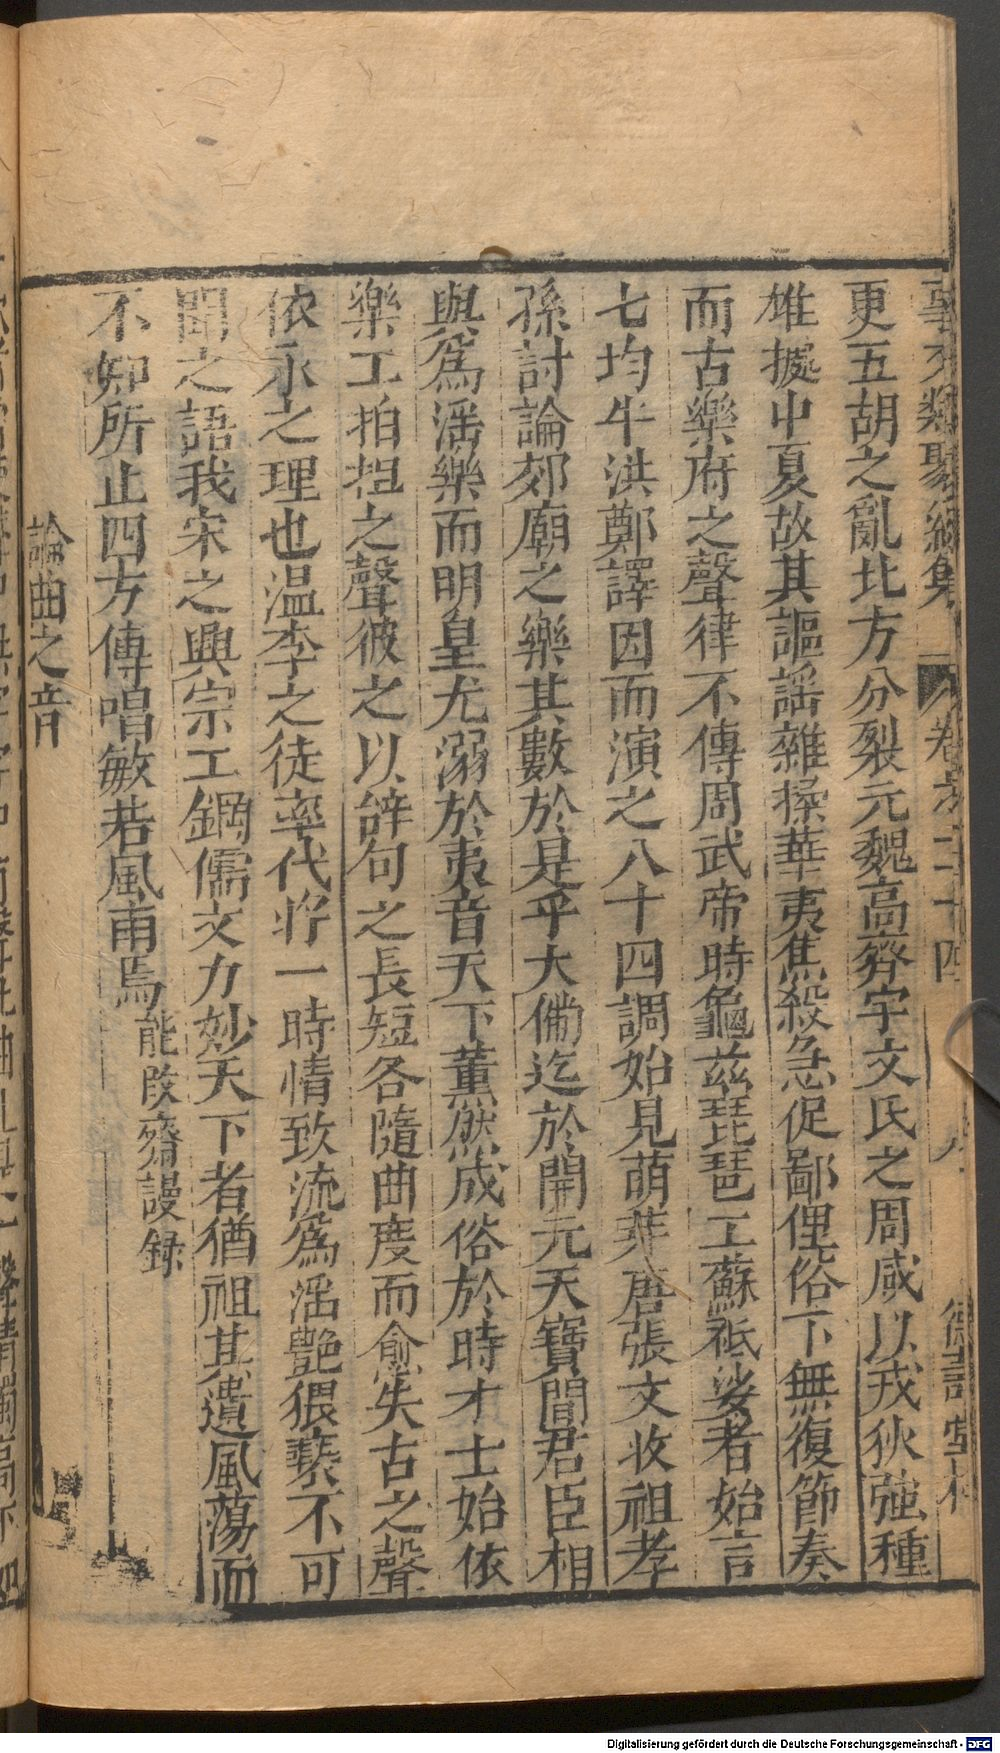 事文類聚續集 卷之二十四 九 德壽堂梓
更五胡之亂北方分裂元魏高齊宇文氏之周咸以戎狄強種
雄據中夏故其謳謡雜揉華夷焦殺急促鄙俚俗下無復節奏
而古樂府之聲律不傳周武帝時龜兹琵琶工蘇祗婆者始言
七均牛洪鄭譯因而演之八十四調始見萌芽唐張文收祖孝
孫討論郊廟之樂其數於是乎大備迄於開元天寶間君臣相
與爲滛樂而明皇尤溺於夷音天下薫然成俗於時才士始依
樂工拍担之聲彼之以辝句之長短各隨曲度而愈失古之聲
依永之理也温李之徒率代将一時情致流爲滛艶猥褻不可
聞之語我宋之興宗工鋼儒文力妙天下者猶祖其遺風蕩而
不知所止四方傳唱敏若風雨焉能改齋謾録
論曲之音
Digitalisierung gefördert durch die Deutsche Forschungsgemeinschaft - DFG